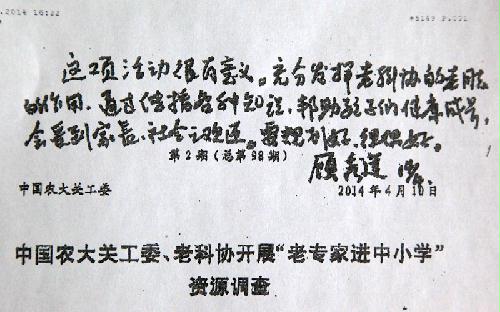 .2014 16:22
*5169 P.001
这项活动很有意义。充分发挥老科协的老同志
的作用，通过传播各种知识，帮助孩子们健康成长，
会受到家长、社会之欢迎。要规划好，组织好。
第2期（总第98期）
中国农大关工委
2014年4月10日
中国农大关工委、老科协开展“老专家进中小学”
资源调查